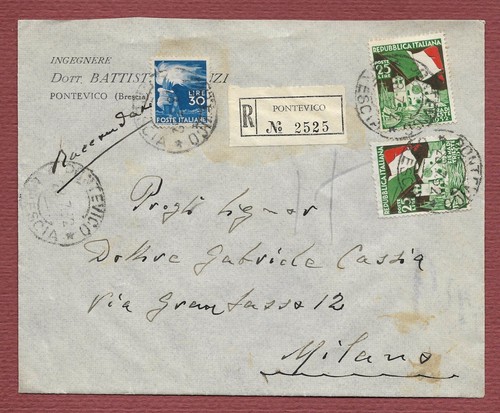 INGEGNERE
DOTT. BATTIST
PONTEVICO (Brescia)
Raccomandata
LIRE
30
POSTE ITALIANE
R
PONTEVICO
№ 2525
REPUBBLICA ITALIANA
POSTE
25
LIRE
REPUBBLICA ITALIANA
25
PONTEVICO
BRESCIA
Dottore Gabriele Cassia
Via Gran Sasso 12
Milano